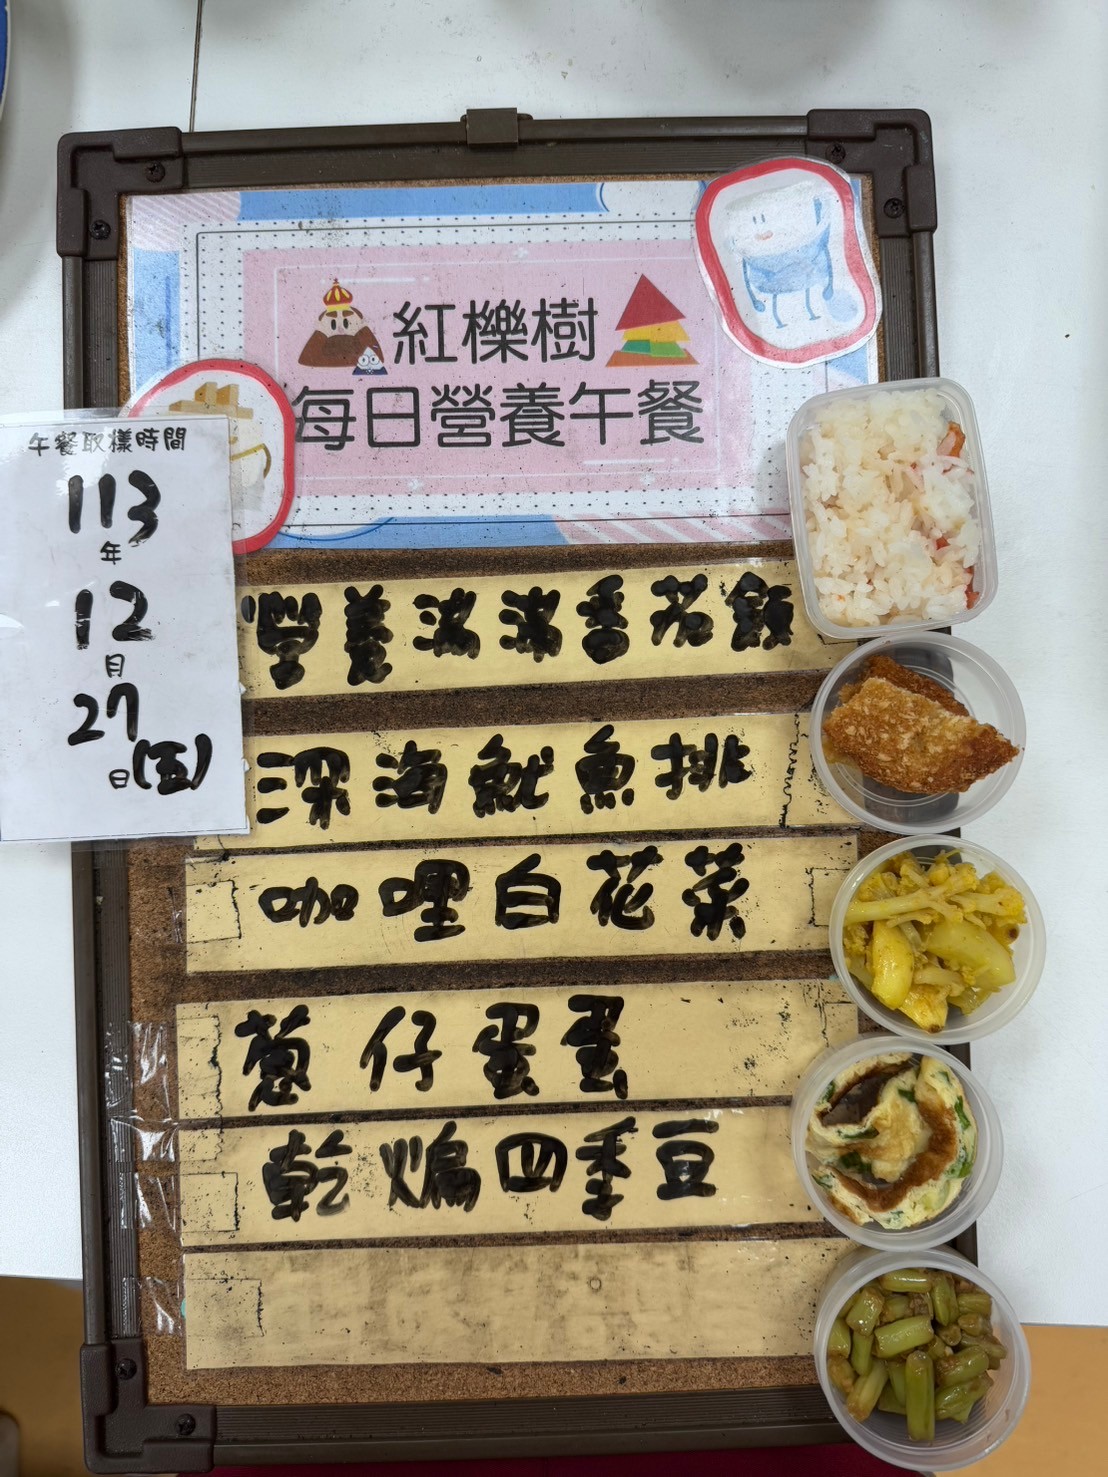 紅櫟樹
每日營養午餐
午餐取樣時間
113
年
12
月
27
日(五)
營養滿滿香菇飯
深海魷魚排
咖哩白花菜
蔥仔蛋蛋
乾煸四季豆